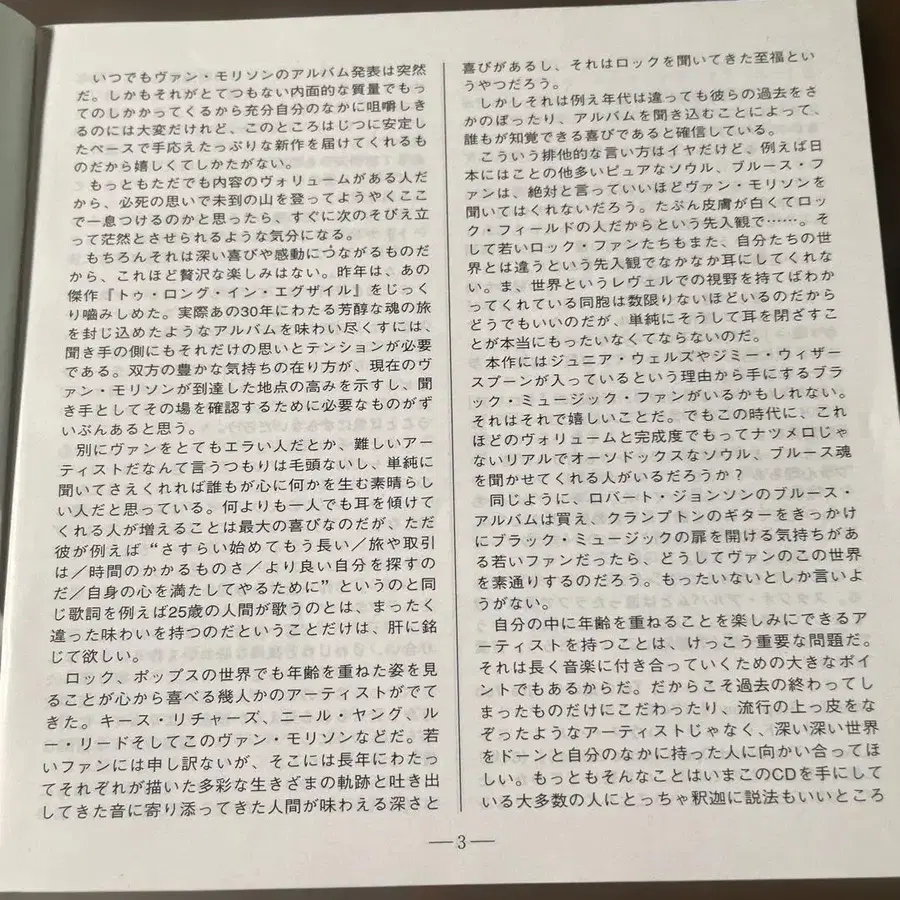 いつでもヴァン・モリソンのアルバム発表は突然
だ。しかもそれがとてつもない内面的な質量でもっ
てのしかかってくるから充分自分のなかに咀嚼しき
るのには大変だけれど、このところはじつに安定し
たペースで手応えたっぷりな新作を届けてくれるも
のだから嬉しくてしかたがない。
もっともただでも内容のヴォリュームがある人だ
から、必死の思いで未到の山を登ってようやくここ
で一息つけるのかと思ったら、すぐに次のそびえ立
って茫然とさせられるような気分になる。
もちろんそれは深い喜びや感動につながるものだ
から、これほど贅沢な楽しみはない。昨年は、あの
傑作『トゥ・ロング・イン・エグザイル』をじっく
り嚙みしめた。実際あの30年にわたる芳醇な魂の旅
を封じ込めたようなアルバムを味わい尽くすには、
聞き手の側にもそれだけの思いとテンションが必要
である。双方の豊かな気持ちの在り方が、現在のヴ
ァン・モリソンが到達した地点の高みを示すし、聞
き手としてその場を確認するために必要なものがず
いぶんあると思う。
別にヴァンをとてもエラい人だとか、難しいアー
ティストだなんて言うつもりは毛頭ないし、単純に
聞いてさえくれれば誰もが心に何かを生む素晴らし
い人だと思っている。何よりも一人でも耳を傾けて
くれる人が増えることは最大の喜びなのだが、ただ
彼が例えば“さすらい始めてもう長い／旅や取引
は／時間のかかるものさ／より良い自分を探すの
だ／自身の心を満たしてやるために”というのと同
じ歌詞を例えば25歳の人間が歌うのとは、まったく
違った味わいを持つのだということだけは、肝に銘
じて欲しい。
ロック、ポップスの世界でも年齢を重ねた姿を見
ることが心から喜べる幾人かのアーティストがでて
きた。キース・リチャーズ、ニール・ヤング、ル
ー・リードそしてこのヴァン・モリソンなどだ。若
いファンには申し訳ないが、そこには長年にわたっ
てそれぞれが描いた多彩な生きざまの軌跡と吐き出
してきた音に寄り添ってきた人間が味わえる深さと
喜びがあるし、それはロックを聞いてきた至福とい
うやつだろう。
しかしそれは例え年代は違っても彼らの過去をさ
かのぼったり、アルバムを聞き込むことによって、
誰もが知覚できる喜びであると確信している。
こういう排他的な言い方はイヤだけど、例えば日
本にはことの他多いピュアなソウル、ブルース・フ
ァンは、絶対と言っていいほどヴァン・モリソンを
聞いてはくれないだろう。たぶん皮膚が白くてロッ
ク・フィールドの人だからという先入観で……。そ
して若いロック・ファンたちもまた、自分たちの世
界とは違うという先入観でなかなか耳にしてくれな
い。ま、世界というレヴェルでの視野を持てばわか
ってくれている同胞は数限りないほどいるのだから
どうでもいいのだが、単純にそうして耳を閉ざすこ
とが本当にもったいなくてならないのだ。
本作にはジュニア・ウェルズやジミー・ウィザー
スプーンが入っているという理由から手にするブラ
ック・ミュージック・ファンがいるかもしれない。
それはそれで嬉しいことだ。でもこの時代に、これ
ほどのヴォリュームと完成度でもってナツメロじゃ
ないリアルでオーソドックスなソウル、ブルース魂
を聞かせてくれる人がいるだろうか？
同じように、ロバート・ジョンソンのブルース・
アルバムは買え、クランプトンのギターをきっかけ
にブラック・ミュージックの扉を開ける気持ちがあ
る若いファンだったら、どうしてヴァンのこの世界
を素通りするのだろう。もったいないとしか言いよ
うがない。
自分の中に年齢を重ねることを楽しみにできるア
ーティストを持つことは、けっこう重要な問題だ。
それは長く音楽に付き合っていくための大きなポイ
ントでもあるからだ。だからこそ過去の終わってし
まったものだけにこだわったり、流行の上っ皮をな
ぞったようなアーティストじゃなく、深い深い世界
をドーンと自分のなかに持った人に向かい合ってほ
しい。もっともそんなことはいまこのCDを手にして
いる大多数の人にとっちゃ釈迦に説法もいいところ
—3—